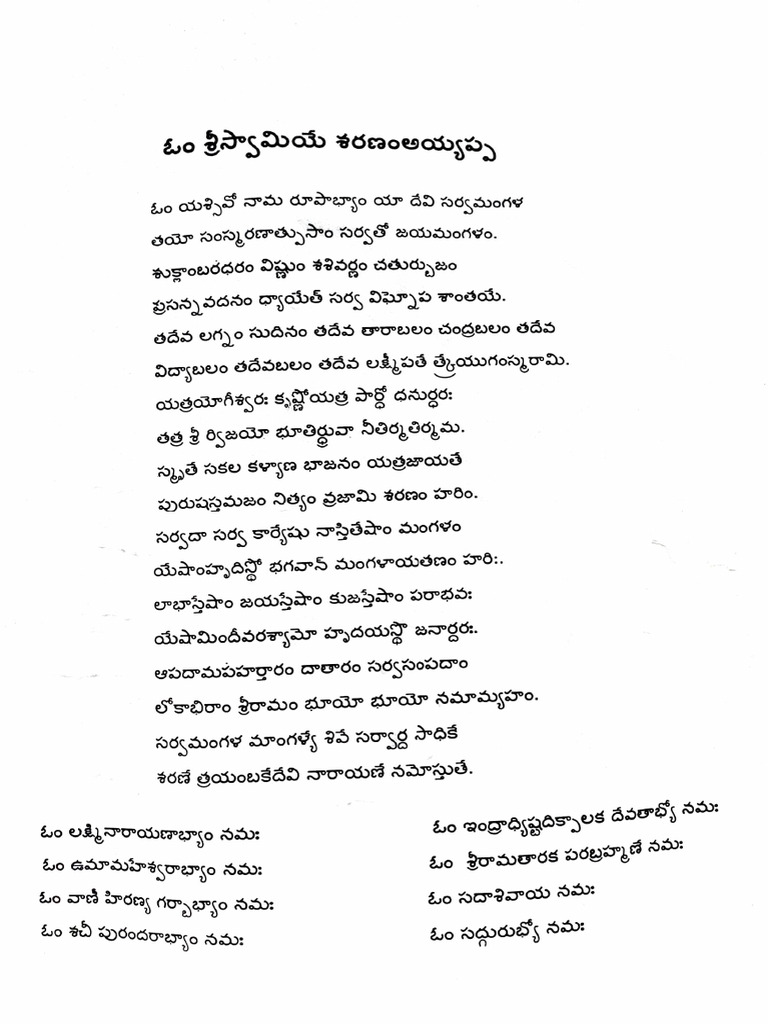 ఓం శ్రీస్వామియే శరణంఅయ్యప్ప
ఓం యశ్శివో నామ రూపాభ్యాం యా దేవి సర్వమంగళ
తయో సంస్మరణాత్పుసాం సర్వతో జయమంగళం.
శుక్లాంబరధరం విష్ణుం శశివర్ణం చతుర్భుజం
ప్రసన్నవదనం ధ్యాయేత్ సర్వ విఘ్నోప శాంతయే.
తదేవ లగ్నం సుదినం తదేవ తారాబలం చంద్రబలం తదేవ
విద్యాబలం తదేవబలం తదేవ లక్ష్మీపతే త్క్రేయుగంస్మరామి.
యత్రయోగీశ్వరః కృష్ణోయత్ర పార్థో ధనుర్ధరః
తత్ర శ్రీ ర్విజయో భూతిర్ధ్రువా నీతిర్మతిర్మమ.
స్మృతే సకల కళ్యాణ భాజనం యత్రజాయతే
పురుషస్తమజం నిత్యం వ్రజామి శరణం హరిం.
సర్వదా సర్వ కార్యేషు నాస్తితేషాం మంగళం
యేషాంహృదిస్థో భగవాన్ మంగళాయతణం హరిః.
లాభాస్తేషాం జయస్తేషాం కుజస్తేషాం పరాభవః
యేషామిందీవరశ్యామో హృదయస్థొ జనార్దరః.
ఆపదామపహర్తారం దాతారం సర్వసంపదాం
లోకాభిరాం శ్రీరామం భూయో భూయో నమామ్యహం.
సర్వమంగళ మాంగళ్యే శివే సర్వార్ద సాధికే
శరణే త్రయంబకేదేవి నారాయణే నమోస్తుతే.
ఓం లక్ష్మినారాయణాభ్యాం నమః
ఓం ఉమామహేశ్వరాభ్యాం నమః
ఓం వాణీ హిరణ్య గర్భాభ్యాం నమః
ఓం శచీ పురందరాభ్యాం నమః
ఓం ఇంద్రాధ్యిష్టదిక్పాలక దేవతాభ్యో నమః
ఓం శ్రీరామతారక పరబ్రహ్మణే నమః
ఓం సదాశివాయ నమః
ఓం సద్గురుభ్యో నమః